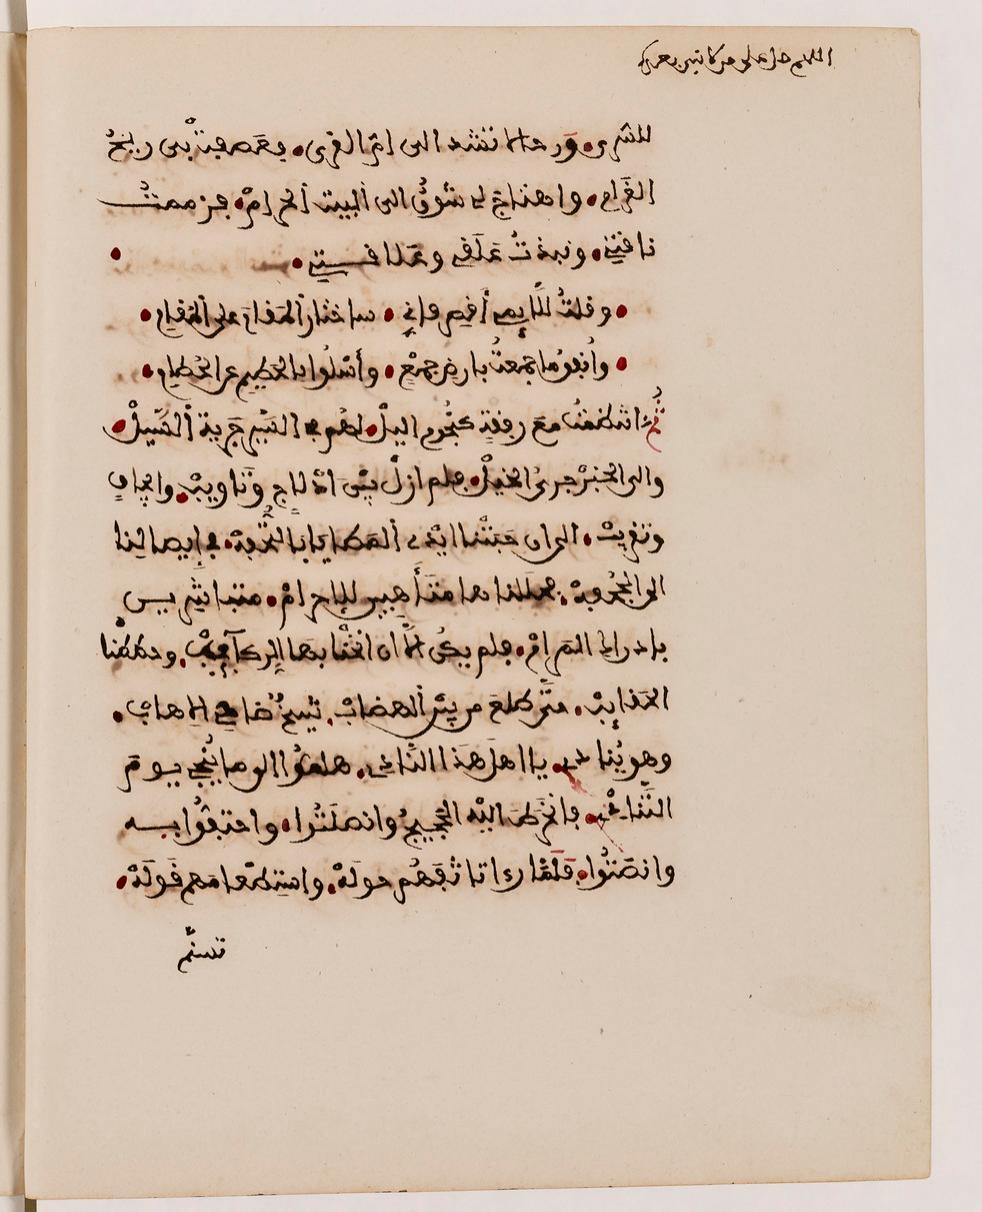 اللهم صل على من كا
للسرى ورحالا تشد الى ام القرى فعصفت بى ريح
الغرام واهتاج لي شوق الى البيت الحرام فزممت
ناقتي ونبذت علقي وعلاقتي
وقلت للايمي أقصر فإني ساختار المقام على المقام
وأنفق ما جمعت بارض جمع وأسلوا بالحطيم عن الحطام
ثم انتظمت مع رفقة كنجوم اليل لهم في السير جرية السيل
والى الخير جري الخيل فلم ازل بين ادلاج وتاويب وايجاف
وتقريب الى ان حبتنا ايدي المطايا بالتحفة في إيصالنا
الى الجحفة فحللناها متأهبين للاحرام متباشرين
بادراك المرام فلم يكن الا ان انخنا بها الركآئب وحططنا
الحقايب حتى طلع من بين الهضاب شخص ضاحي الاهاب
وهو ينادي يا اهل هذا النادي هلموا الى ما ينجي يوم
التنادي فانخرط اليه الحجيج وانصلتوا واحتفوا به
وانصتوا فلما رءا تاثفهم حوله واستعظامهم قوله
تسنم